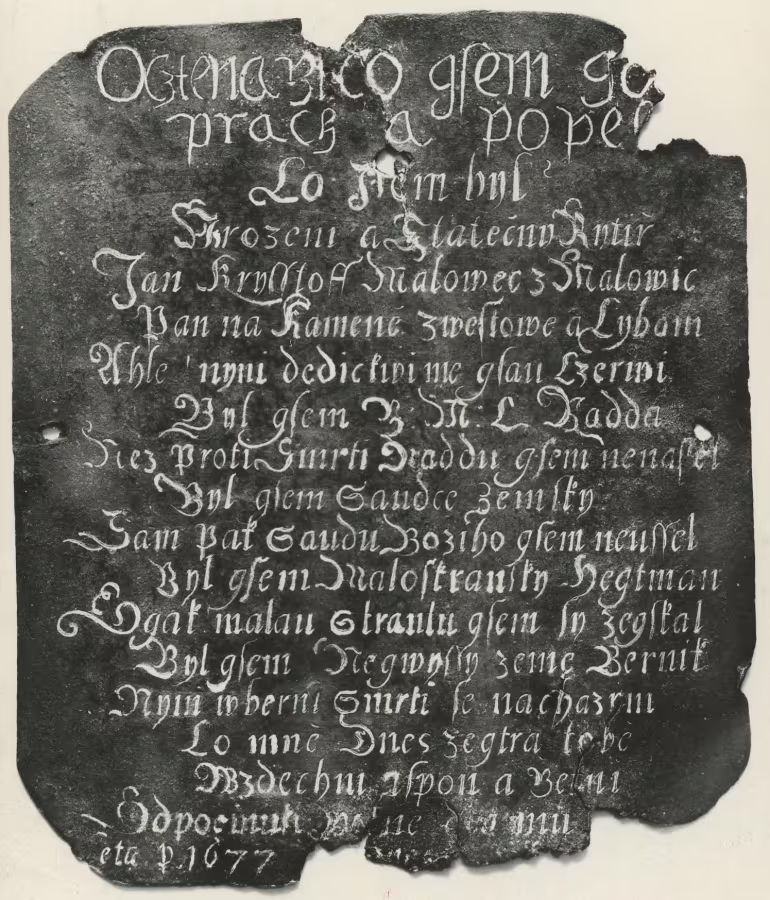 Ocztenarzi co gsem ga
prach a popel
Co gsem byl
Urozeni a Statečny Rytiř
Jan Krysstoff Malowec z Malowic
Pan na Kamené zwestowe a Lybani
Ahle nyni dedictwi me gsau Czerwi
Byl gsem G: M: C: Radda
Nez Proti Smrti Raddu gsem nenassel
Byl gsem Saudce Zemsky
Sam Pak Saudu Bozího gsem neussel
Byl gsem Malostransky Hegtman
Egak malau Stranku gsem sy Zegskal
Byl gsem Negwyssy zemę Berník
Nyni w berni Smrti se nachazim
Co mně Dnes zegtra tobe
Wzdechni aspon a
Odpocinuti
léta P. 1677